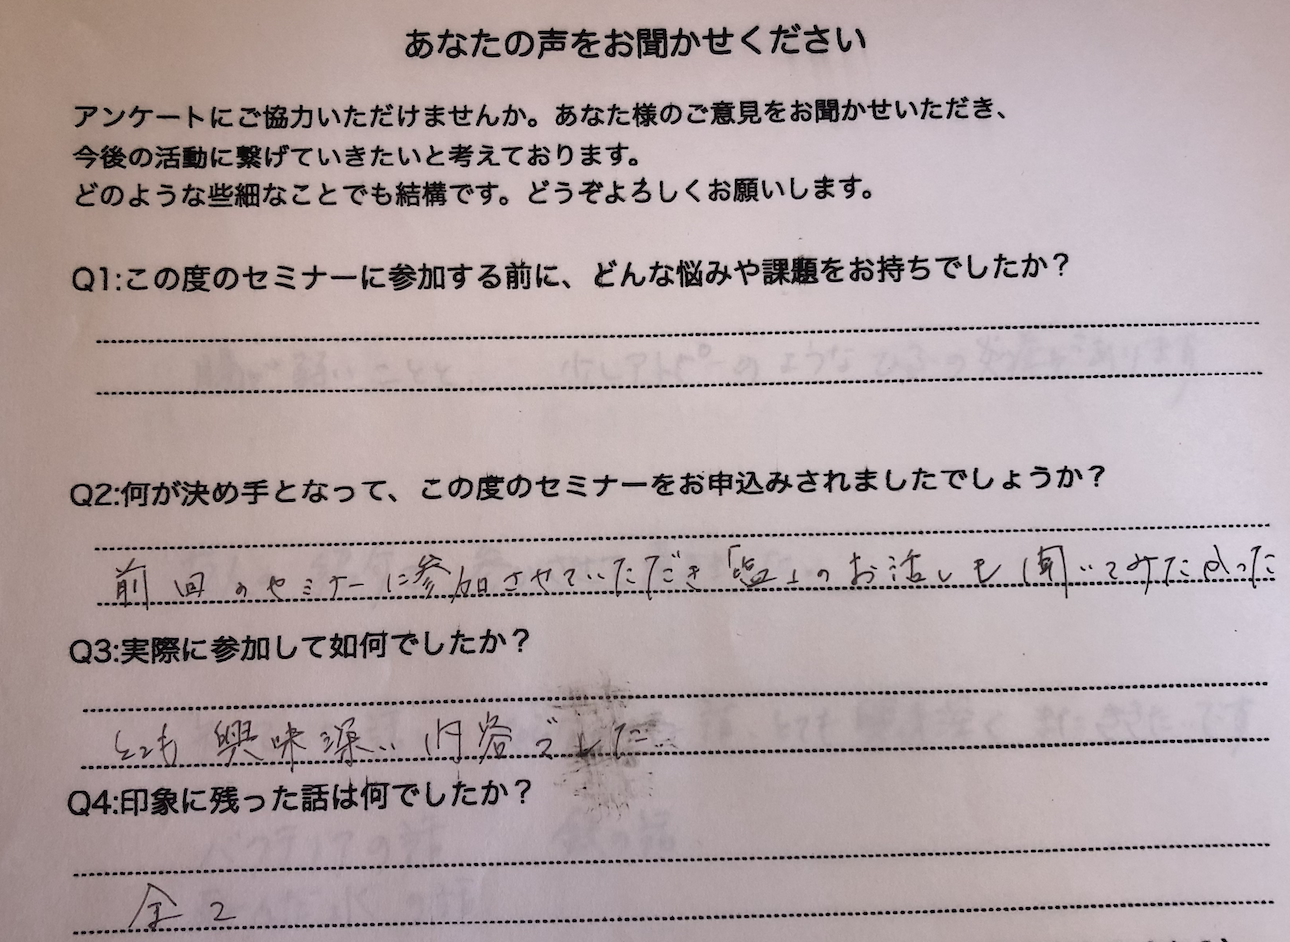 あなたの声をお聞かせください
アンケートにご協力いただけませんか。あなた様のご意見をお聞かせいただき、
今後の活動に繋げていきたいと考えております。
どのような些細なことでも結構です。どうぞよろしくお願いします。
Q1:この度のセミナーに参加する前に、どんな悩みや課題をお持ちでしたか？
Q2:何が決め手となって、この度のセミナーをお申込みされましたでしょうか？
前回のセミナーに参加させていただき「塩」のお話しも聞いてみたかった
Q3:実際に参加して如何でしたか？
とても興味深い内容でした。
Q4:印象に残った話は何でしたか？
全て